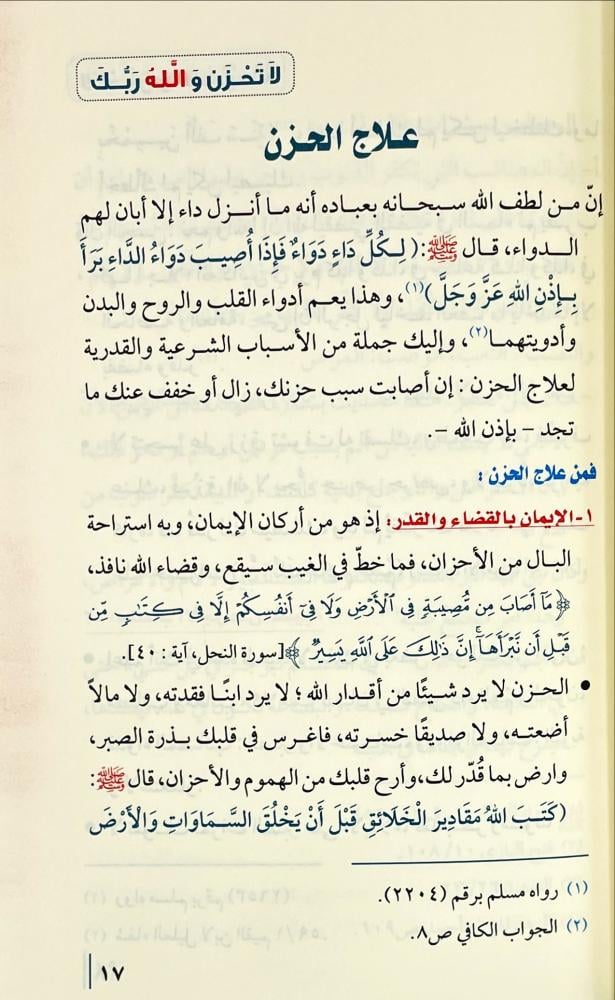 لَا تَحْزَن وَاللَّهُ رَبُّكَ
علاج الحزن
إنّ من لطف الله سبحانه بعباده أنه ما أنزل داء إلا أبان لهم
الدواء، قال ﷺ: (لِكُلِّ دَاءٍ دَوَاءٌ فَإِذَا أُصِيبَ دَوَاءُ الدَّاءِ بَرَأَ
بِإِذْنِ اللهِ عَزَّ وَجَلَّ)(١)، وهذا يعم أدواء القلب والروح والبدن
وأدويتهما(٢)، وإليك جملة من الأسباب الشرعية والقدرية
لعلاج الحزن : إن أصابت سبب حزنك، زال أو خفف عنك ما
تجد – بإذن الله –.
فمن علاج الحزن :
١- الإيمان بالقضاء والقدر: إذ هو من أركان الإيمان، وبه استراحة
البال من الأحزان، فما خطّ في الغيب سيقع، وقضاء الله نافذ،
﴿مَا أَصَابَ مِن مُّصِيبَةٍ فِي الْأَرْضِ وَلَا فِي أَنفُسِكُمْ إِلَّا فِي كِتَابٍ مِّن
قَبْلِ أَن نَّبْرَأَهَا ۚ إِنَّ ذَٰلِكَ عَلَى اللَّهِ يَسِيرٌ﴾ [سورة النحل، آية : ٤٠].
• الحزن لا يرد شيئًا من أقدار الله ؛ لا يرد ابنًا فقدته، ولا مالاً
أضعته، ولا صديقًا خسرته، فاغرس في قلبك بذرة الصبر،
وارض بما قُدّر لك، وأرح قلبك من الهموم والأحزان، قال ﷺ:
(كَتَبَ اللهُ مَقَادِيرَ الْخَلَائِقِ قَبْلَ أَنْ يَخْلُقَ السَّمَاوَاتِ وَالْأَرْضَ
(١) رواه مسلم برقم (٢٢٠٤).
(٢) الجواب الكافي ص٨.
١٧